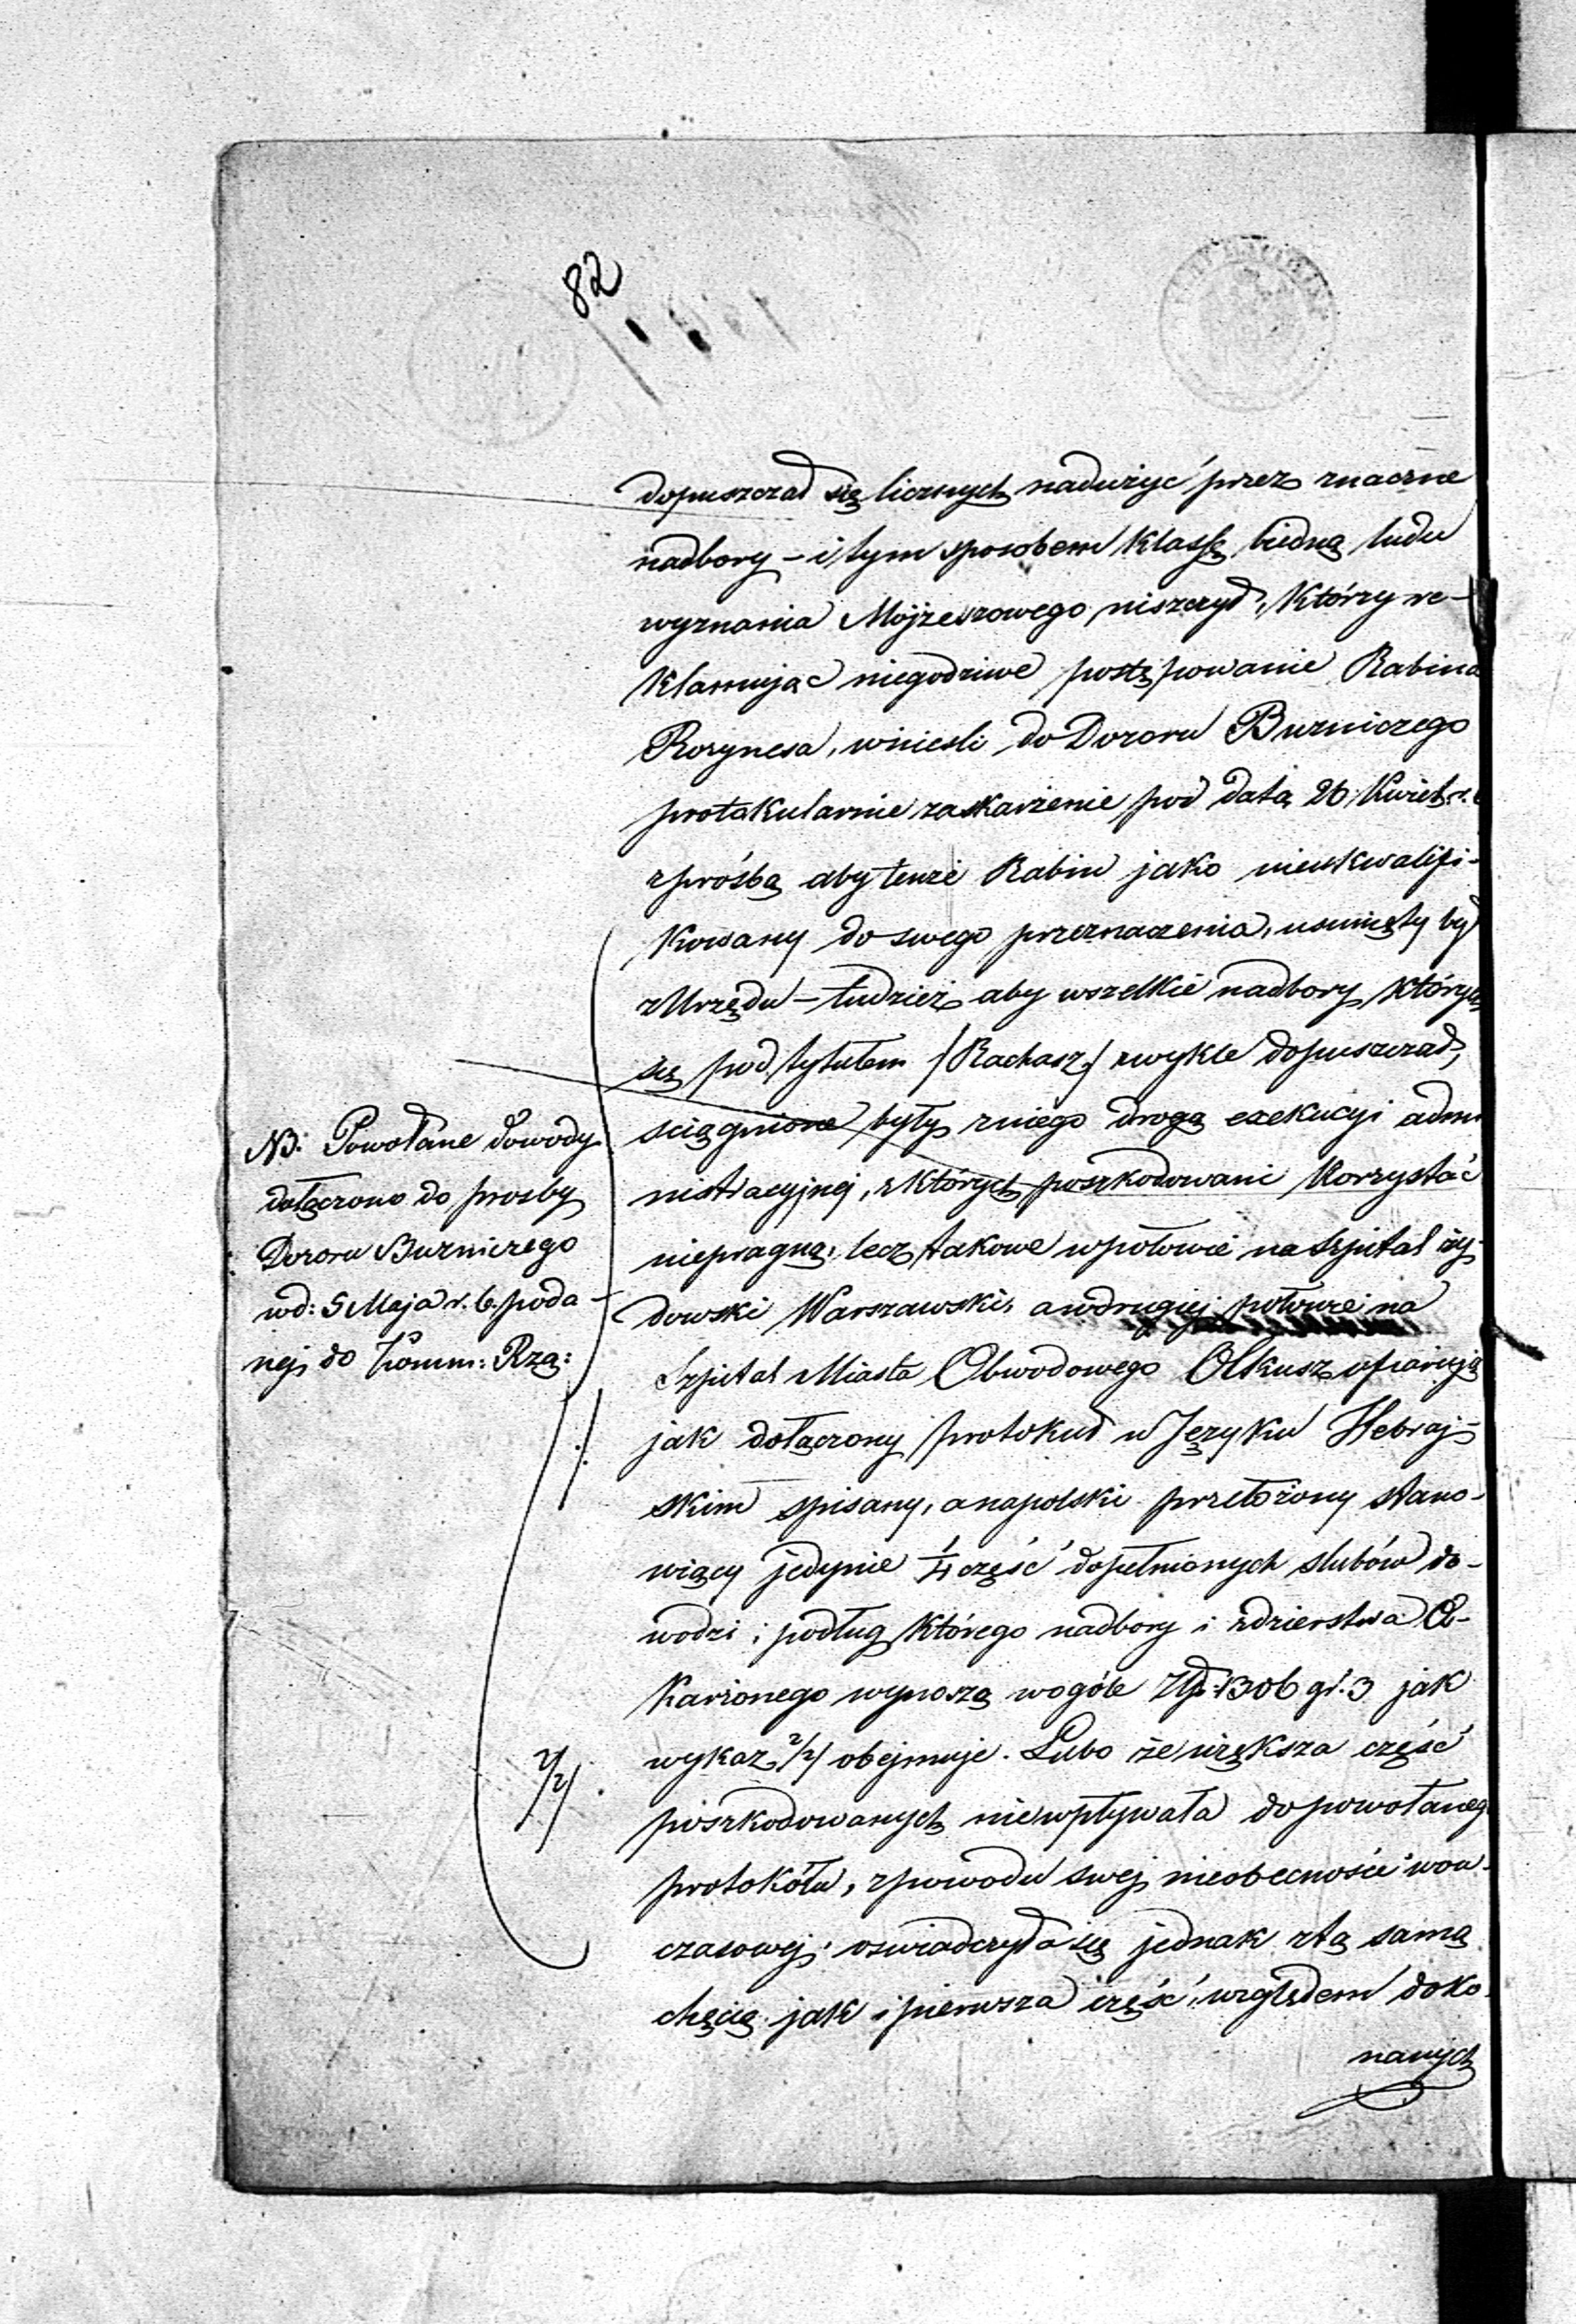 82
dopuszczał się licznych nadużyć przez znaczne
nadbory – i tym sposobem klassę biedną ludu
wyznania Mojżeszowego niszczył, którzy re-
klamując niegodziwe postępowanie Rabina
Rozynesa, wniesli do Dozoru Buzniczego
protokularnie zaskarżenie pod datą 26 Kwiet. r. b
z prośbą aby tenże Rabin jako nieukwalifi-
kowany do swego przeznaczenia, usunięty był
z Urzędu – tudzież aby wszelkie nadbory których
się pod tytułem /Rachasz/ zwykle dopuszczał,
sciągnione były z niego drogą exekucyi admi
nistracyjnej, z których poszkodowani korzystać
niepragną, lecz takowe wpołowie na Szpital ży-
dowski Warszawski, a wdrugiej połowie na
Szpital Miasta Obwodowego Olkusz ofiarują
jak dołączony protokuł w Języku Hebraj-
skim spisany, a napolski przełożony stano-
wiący jedynie 1/4 część dopełnionych slubów do-
wodzi; podług którego nadbory i zdzierstwa O-
karżonego wynoszą wogóle Złp. 1306 gr. 3 jak
wykaz 2/2/ obejmuje. Lubo że większa część
poszkodowanych niewpływała do powołaneg
protokółu, z powodu swej nieobecności won-
czasowej, oswiadczyła się jednak z tą samą
chęcią jak i pierwsza część, względem doko
nanych
NB: Powołane dowody
dołączono do prosby
Dozoru Buzniczego
wd: 5 Maja r. b. poda-
nej do Komm: Rzą:
·/·
2/2/